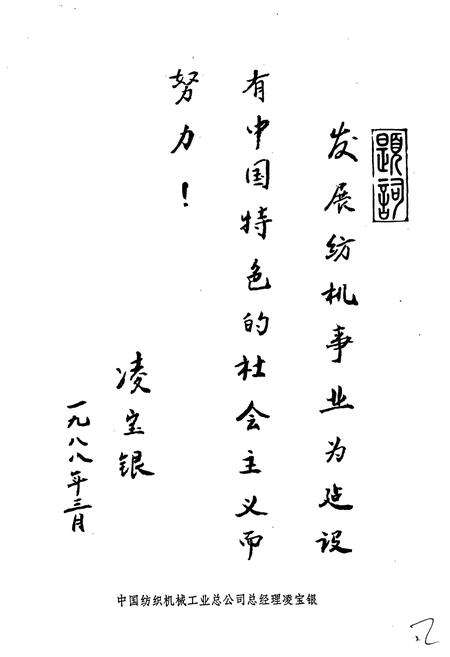 题词
发展纺机事业为建设
有中国特色的社会主义而
努力！
凌宝银
一九八八年三月
中国纺织机械工业总公司总经理凌宝银